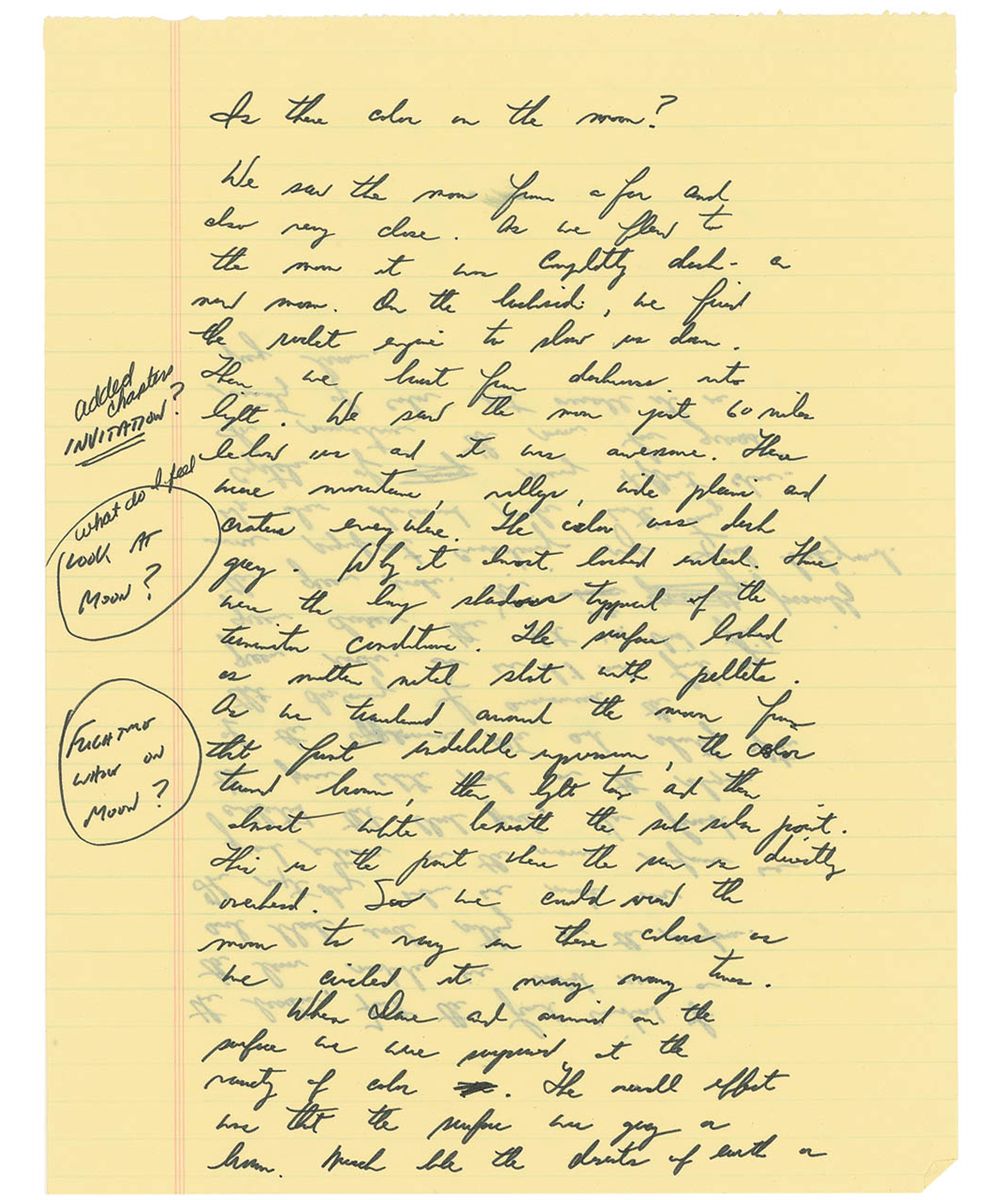 Is there color on the moon?
We saw the moon from a far and
also very close. As we flew to
the moon it was completly dark - a
new moon. On the backside, we fired
the rocket engine to slow us down.
Then we burst from darkness into
light. We saw the moon just 60 miles
below us and it was awesome. There
were mountains, valleys, wide plains and
craters everywhere. The color was dark
grey. Why it almost looked wicked. There
were the long shadows typical of the
terminator conditions. The surface looked
as molten metal shot with pellets.
As we traveled around the moon from
that first indelible impression, the color
turned brown, then light tan and then
almost white beneath the sub solar point.
This is the point where the sun is directly
overhead. So we could the
moon to vary in these colors as
we circled it many many times.
When Dave and arrived on the
surface we were surprised at the
variety of color. The overall effect
was that the surface was gray or
brown. Much like the deserts of earth or
added
chapters
INVITATION?
what do I feel
LOOK AT
MOON?
ON
MOON?